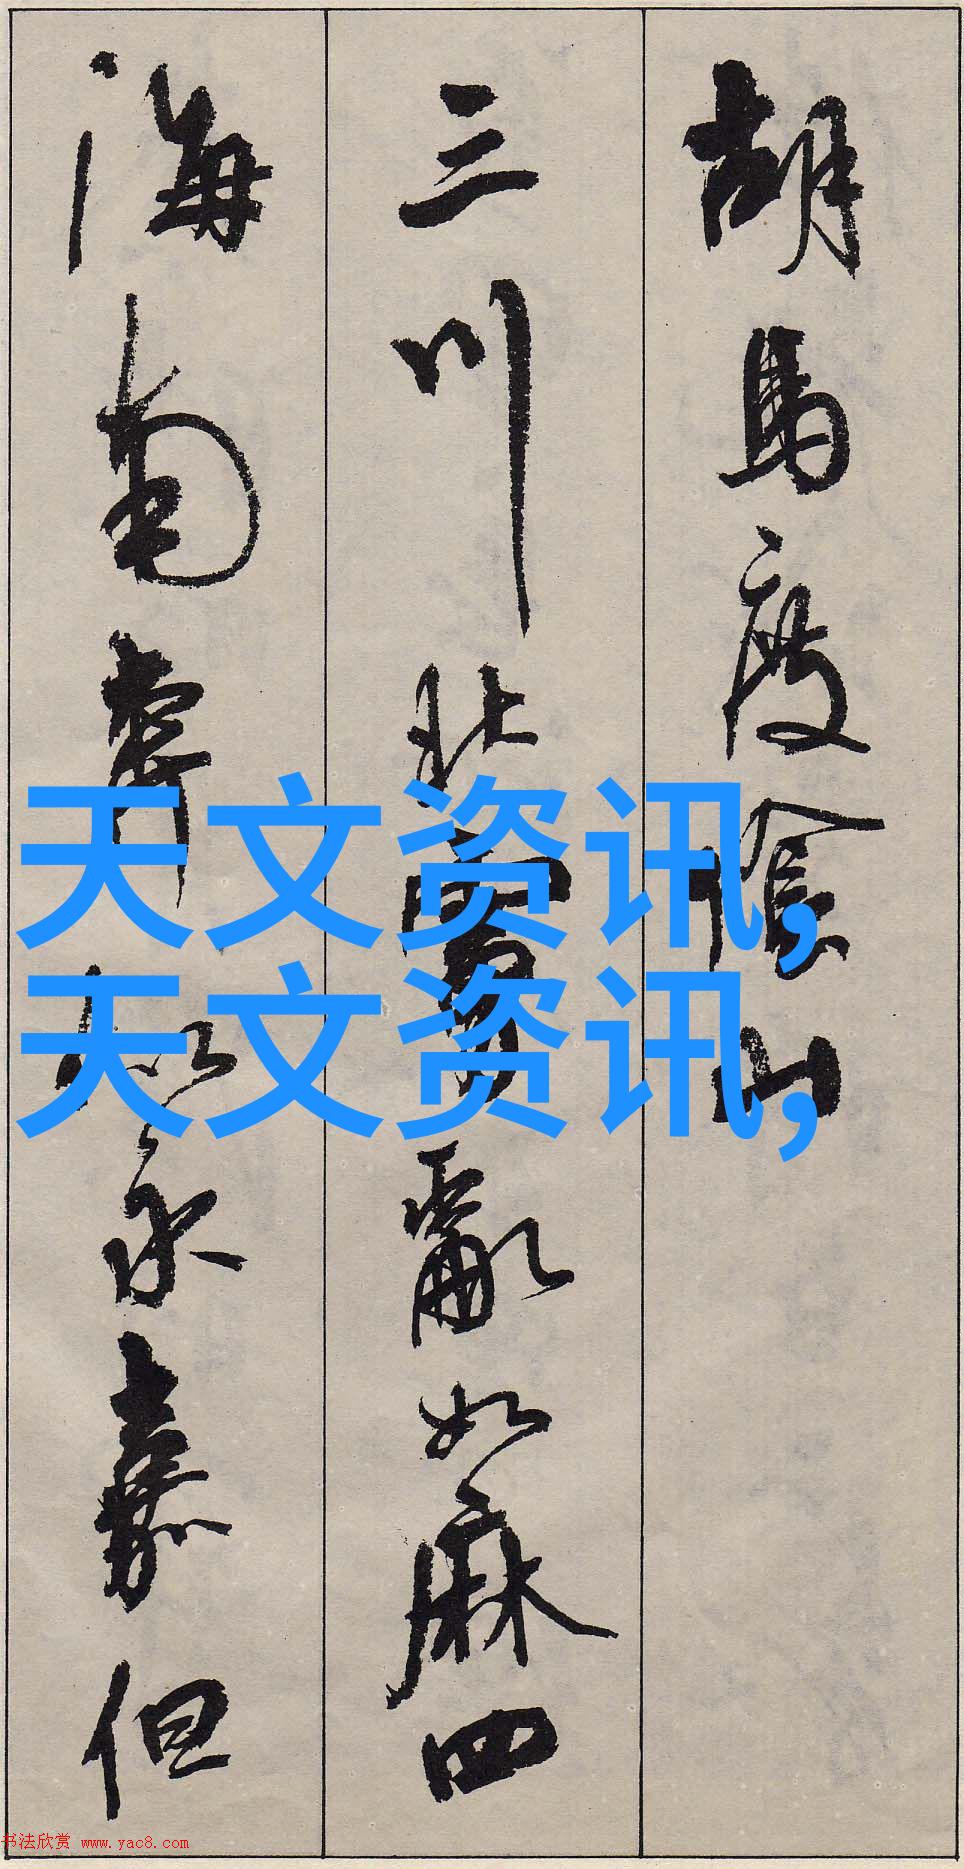 胡馬度陰山
三川北虜亂如麻四
海南奔似永嘉但
天文资讯,
天文资讯,
书法欣赏 www.yac8.com